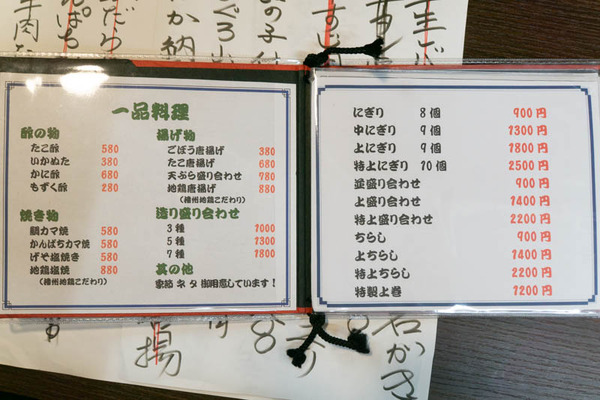 一品料理
酢の物
たこ酢 580
いかぬた 380
かに酢 680
もずく酢 280
焼き物
鯛カマ焼 580
かんぱちカマ焼 580
げそ塩焼き 580
地鶏塩焼 880
(播州地鶏こだわり)
揚げ物
ごぼう唐揚げ 380
たこ唐揚げ 680
天ぷら盛り合わせ 980
地鶏唐揚げ 880
(播州地鶏こだわり)
造り盛り合わせ
3種 1000
5種 1300
7種 1800
其の他
季節ネタ御用意しています!
にぎり 8個 900円
中にぎり 9個 1300円
上にぎり 9個 1800円
特上にぎり 10個 2500円
並盛り合わせ 900円
上盛り合わせ 1400円
特上盛り合わせ 2200円
ちらし 900円
上ちらし 1400円
特上ちらし 2200円
特製上巻 1200円
揚